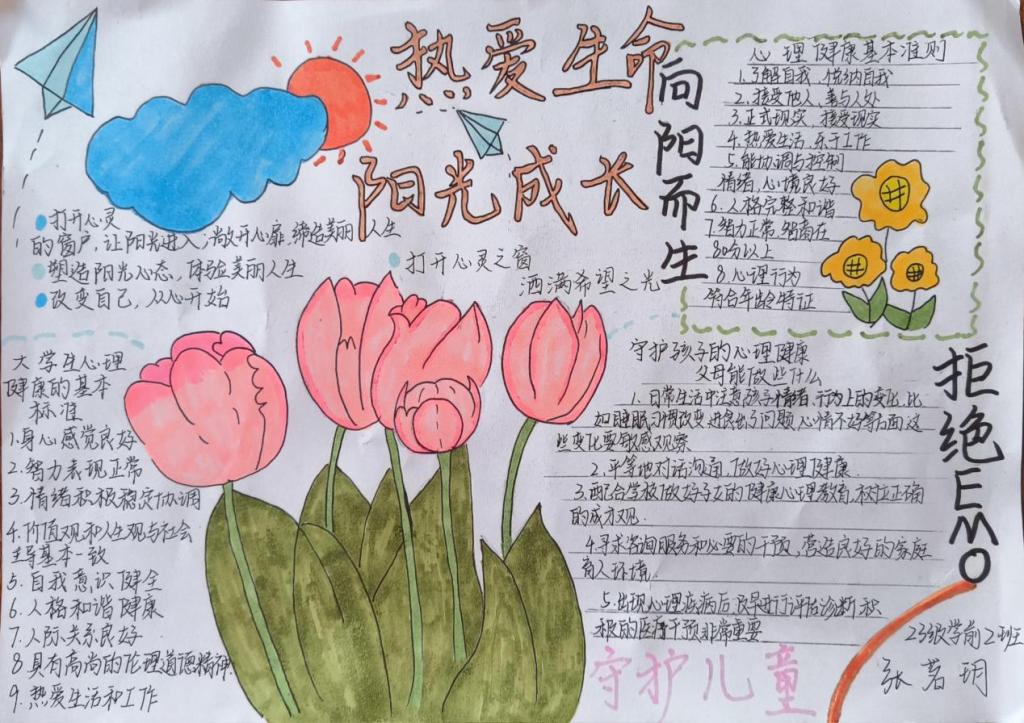 热爱生命
阳光成长
向阳而生
打开心灵
的窗户,让阳光进入,敞开心扉,缔造美丽人生
塑造阳光心态,体验美丽人生
改变自己,从心开始
打开心灵之窗
洒满希望之光
心理健康基本准则
1.了解自我、悦纳自我
2.接受他人,善与人处
3.正式现实,接受现实
4.热爱生活,乐于工作
5.能协调与控制
情绪,心境良好
6.人格完整和谐
7.智力正常,智商在
80分以上
8.心理行为
符合年龄特征
大学生心理
健康的基本
标准
1.身心感觉良好
2.智力表现正常
3.情绪积极稳定协调
4.价值观和人生观与社会
主导基本一致
5.自我意识健全
6.人格和谐健康
7.人际关系良好
8.具有高尚的伦理道德精神
9.热爱生活和工作
守护孩子的心理健康
父母能做些什么
1.日常生活中注意孩子情绪、行为上的变化,比
如睡眠习惯改变,进食出了问题,心情不好等方面这
些变化要敏感观察
2.平等地对话沟通,做好心理健康
3.配合学校做好孩子的健康心理教育,树立正确
的成才观.
4.寻求咨询服务和必要的干预,营造良好的家庭
育人环境.
5.出现心理疾病后,及早进行评估诊断,积
极的医疗干预非常重要
拒绝EMO
守护儿童
23级学前2班
张茗玥